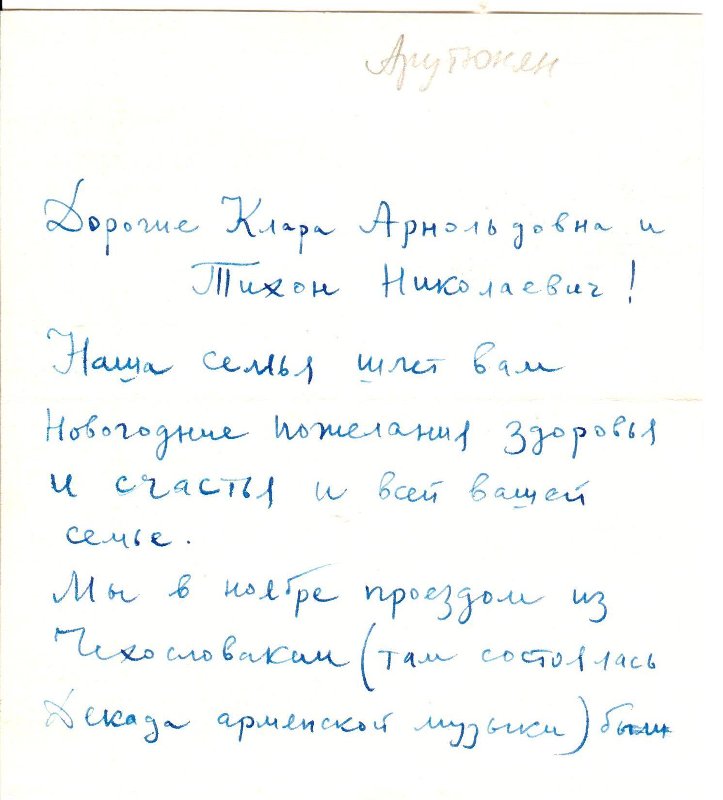 Арутюнян
Дорогие Клара Арнольдовна и
Тихон Николаевич!
Наша семья шлет вам
Новогодние пожелания здоровья
и счастья и всей вашей
семье.
Мы в ноябре проездом из
Чехословакии (там состоялась
Декада армянской музыки) были